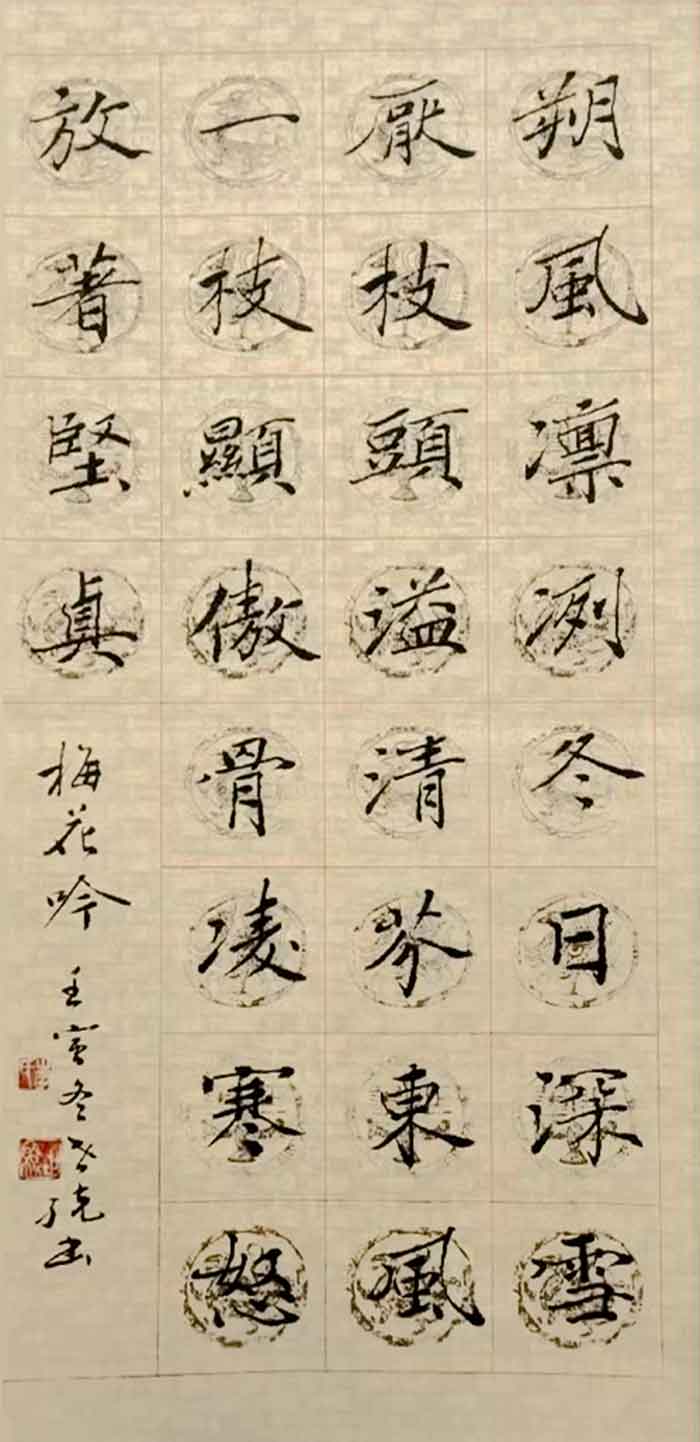 朔風凛冽冬日深雪
厭枝頭溢清芬東風
一枝顯傲骨凌寒怒
放著堅真
梅花吟 壬寅冬 書